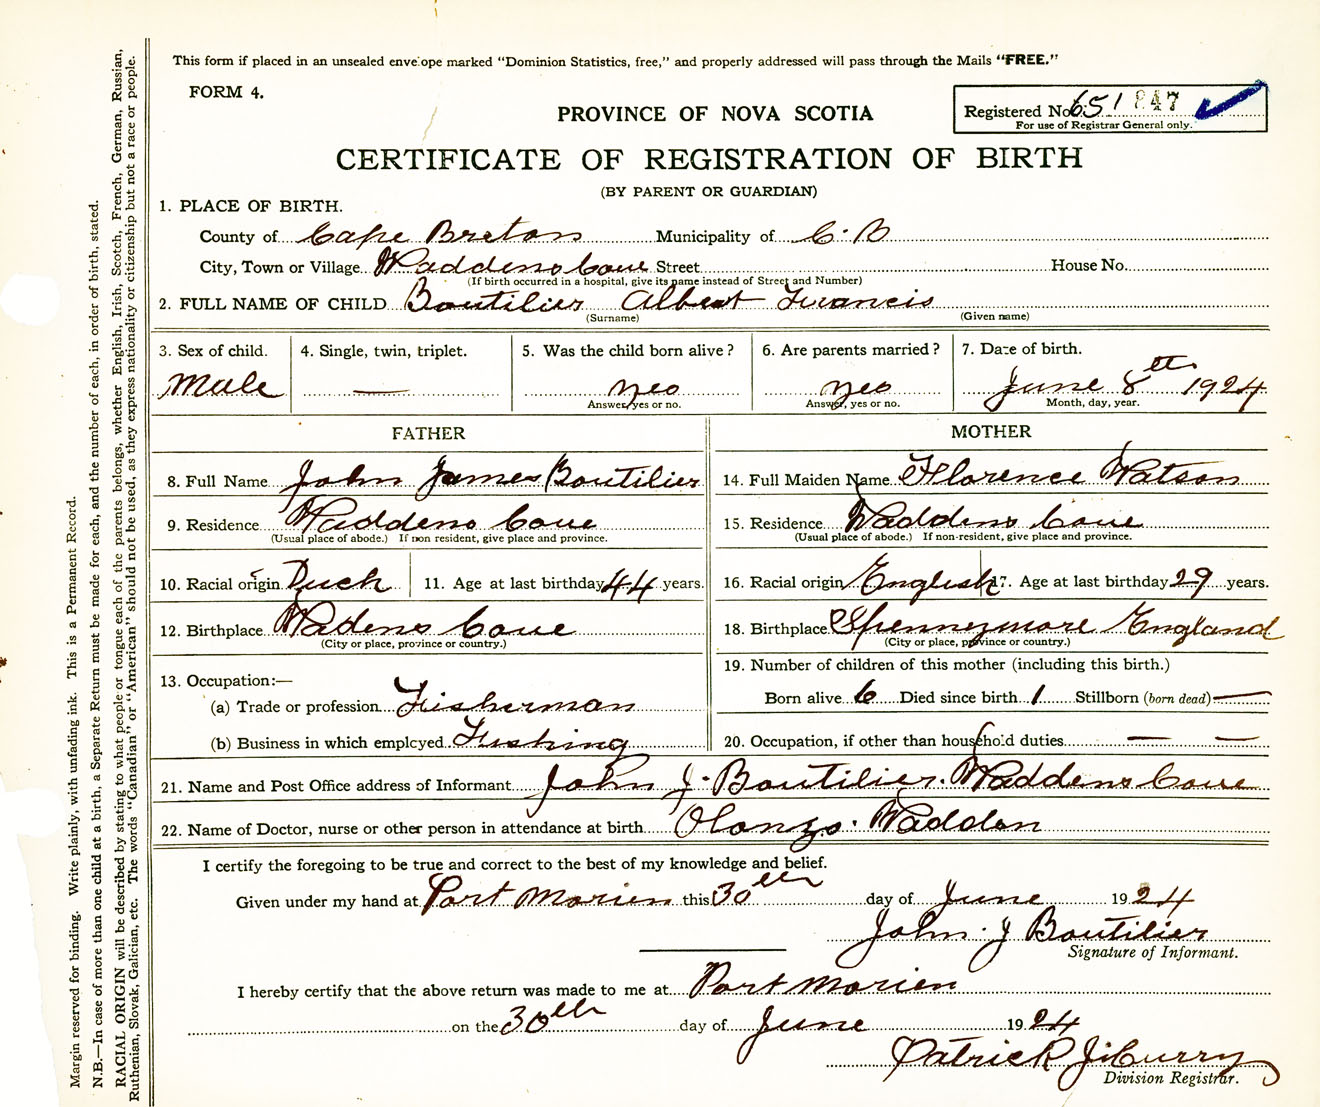 This form if placed in an unsealed envelope marked "Dominion Statistics, free," and properly addressed will pass through the Mails "FREE."
FORM 4.
PROVINCE OF NOVA SCOTIA
Registered No. 651 847
For use of Registrar General only.
CERTIFICATE OF REGISTRATION OF BIRTH
(BY PARENT OR GUARDIAN)
1. PLACE OF BIRTH.
County of Cape Breton Municipality of C. B
City, Town or Village Waddens Cove Street House No.
(If birth occurred in a hospital, give its name instead of Street and Number)
2. FULL NAME OF CHILD Boutilier Albert Francis
(Surname) (Given name)
3. Sex of child. 4. Single, twin, triplet. 5. Was the child born alive? 6. Are parents married? 7. Date of birth.
Male — Yes Yes June 8th 1924
Answer yes or no. Answer, yes or no. Month, day, year.
FATHER MOTHER
8. Full Name John James Boutilier 14. Full Maiden Name Florence Watson
9. Residence Waddens Cove 15. Residence Waddens Cove
(Usual place of abode.) If non resident, give place and province. (Usual place of abode.) If non-resident, give place and province.
10. Racial origin Duch 11. Age at last birthday 44 years. 16. Racial origin English 17. Age at last birthday 29 years.
12. Birthplace Wadens Cove 18. Birthplace Spennymore England
(City or place, province or country.) (City or place, province or country.)
19. Number of children of this mother (including this birth.)
13. Occupation:—
(a) Trade or profession Fisherman Born alive 6 Died since birth 1 Stillborn (born dead) —
(b) Business in which employed Fishing 20. Occupation, if other than household duties — —
21. Name and Post Office address of Informant John J. Boutilier. Waddens Cove
22. Name of Doctor, nurse or other person in attendance at birth Olonzo. Waddon
I certify the foregoing to be true and correct to the best of my knowledge and belief.
Given under my hand at Port Morien this 30th day of June 1924
John. J Boutilier
Signature of Informant.
I hereby certify that the above return was made to me at Port Morien
on the 30th day of June 1924
Patrick J. Curry
Division Registrar.
Margin reserved for binding. Write plainly, with unfading ink. This is a Permanent Record.
N.B.—In case of more than one child at a birth, a Separate Return must be made for each, and the number of each, in order of birth, stated.
RACIAL ORIGIN will be described by stating to what people or tongue each of the parents belongs, whether English, Irish, Scotch, French, German, Russian,
Ruthenian, Slovak, Galician, etc. The words "Canadian" or "American" should not be used, as they express nationality or citizenship but not a race or people.